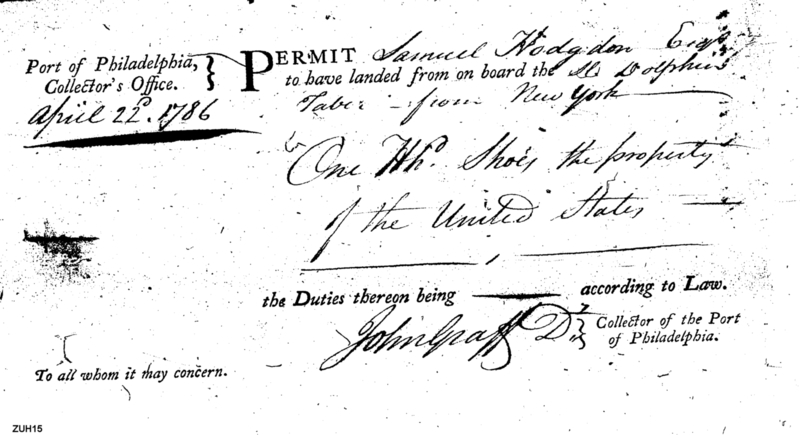 Port of Philadelphia,
Collector's Office.
April 22d. 1786
PERMIT Samuel Hodgdon Esqr
to have landed from on board the Sl. Dolphin
Taber from New York
One Hhd. Shoes the property
of the United States
the Duties thereon being according to Law.
John Graff D.
Collector of the Port
of Philadelphia.
To all whom it may concern.
ZUH15